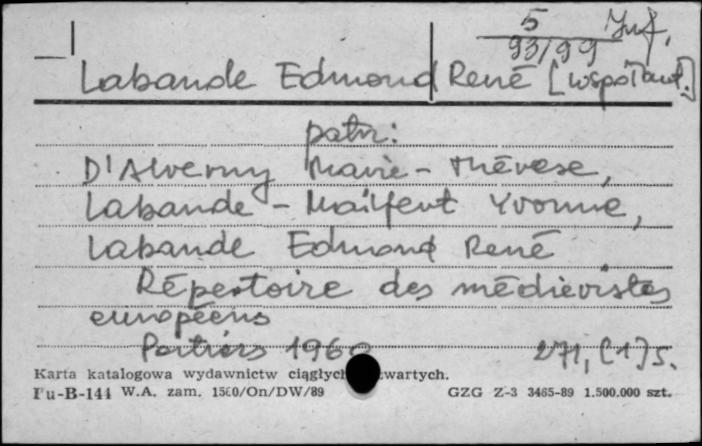 5 Inf.
93/99
Labande Edmond René [współaut.]
patrz:
D'Alverny Marie-Thérèse,
Labande-Mailfert Yvonne,
Labande Edmond René
Répertoire des médiévistes
européens
Poitiers 1960 271, [1] s.
Karta katalogowa wydawnictw ciągłych wartych.
Pu-B-144 W.A. zam. 1560/On/DW/89 GZG Z-3 3465-89 1.500.000 szt.